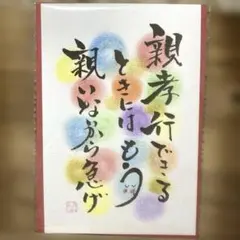 親孝行できる
ときにはもう
親いないから急げ